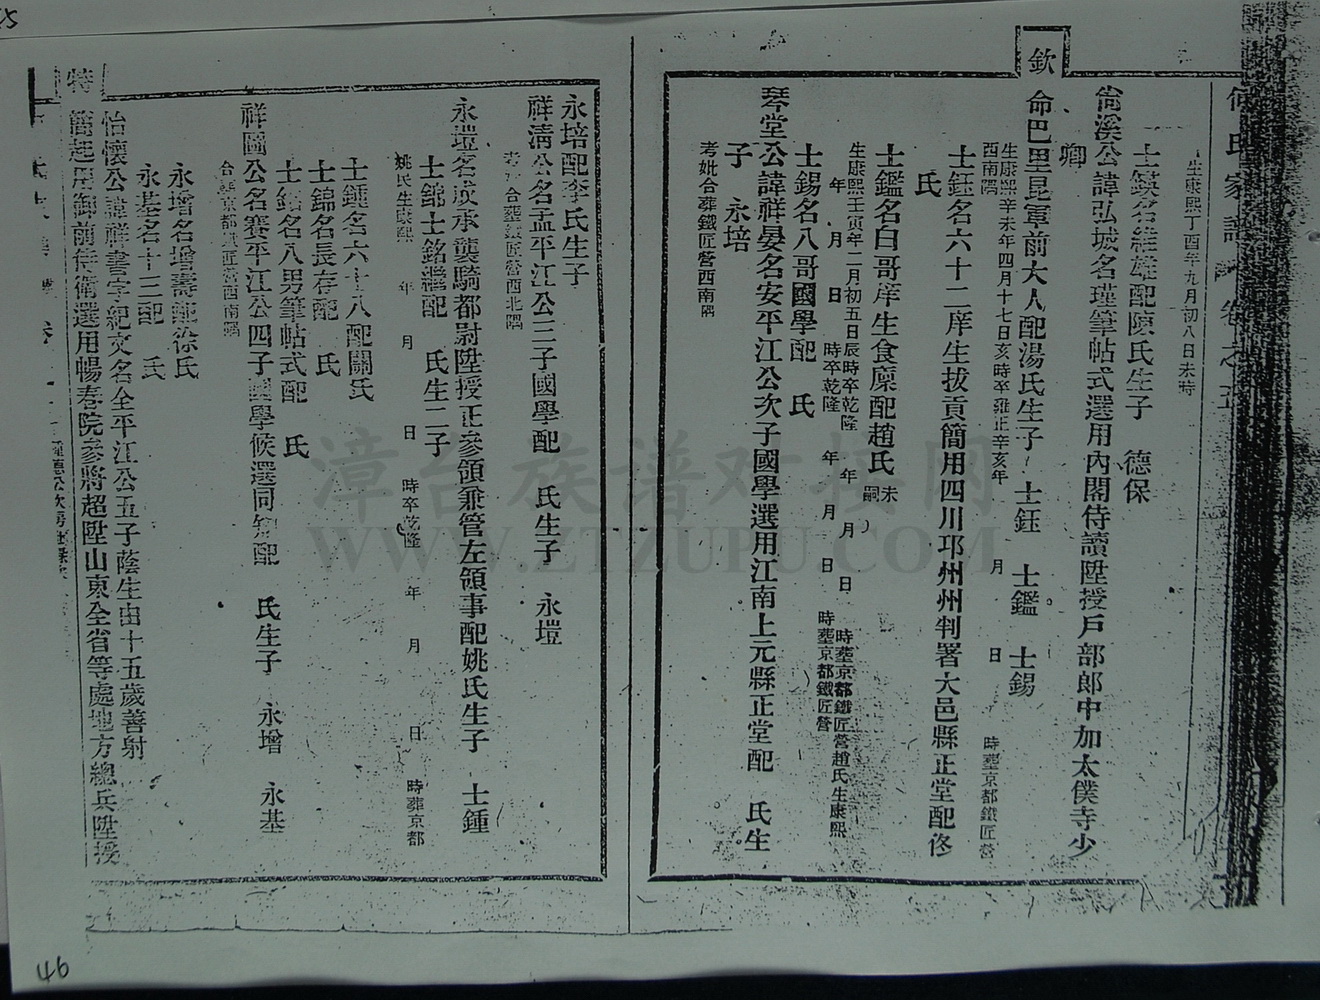 家譜 卷之五
生康熙丁酉年九月初八日未時
士鍈名維雄配陳氏生子 德保
尚溪公諱弘城名瑾筆帖式選用內閣侍讀陞授戶部郎中加太僕寺少
卿
欽
命巴里昆軍前大人配湯氏生子 士鈺 士鑑 士錫
生康熙辛未年四月十七日亥時卒雍正辛亥年 月 日 時葬京都鐵匠營
西南隅
士鈺名六十二庠生拔貢簡用四川邛州州判署大邑縣正堂配佟
氏
士鑑名白哥庠生食廩配趙氏 未嗣
生康熙壬寅年二月初五日辰時卒乾隆 年 月 日 時葬京都鐵匠營趙氏生康熙
年 月 日 時卒乾隆 年 月 日 時葬京都鐵匠營
士錫名八哥國學配 氏
琴堂公諱祥晏名安平江公次子國學選用江南上元縣正堂配 氏生
子 永培
考妣合葬鐵匠營西南隅
永培配李氏生子
祥清公名孟平江公三子國學配 氏生子 永塏
考妣合葬鐵匠營西北隅
永塏名成承襲騎都尉陞授正參領兼管左領事配姚氏生子 士鍾
士錦士銘繼配 氏生二子
姚氏生康熙 年 月 日 時卒乾隆 年 月 日 時葬京都
士鍾名六十八配關氏
士錦名長存配 氏
士銘名八男筆帖式配 氏
祥圖公名賽平江公四子國學候選同知配 氏生子 永增 永基
合葬京都鐵匠營西南隅
永增名增壽配徐氏
永基名十三配 氏
怡懷公諱祥書字紀文名全平江公五子蔭生由十五歲善射
特
簡起用御前侍衛選用暢春院參將超陞山東全省等處地方總兵陞授
46
漳台族谱对接网
WWW.ZTZUPU.COM